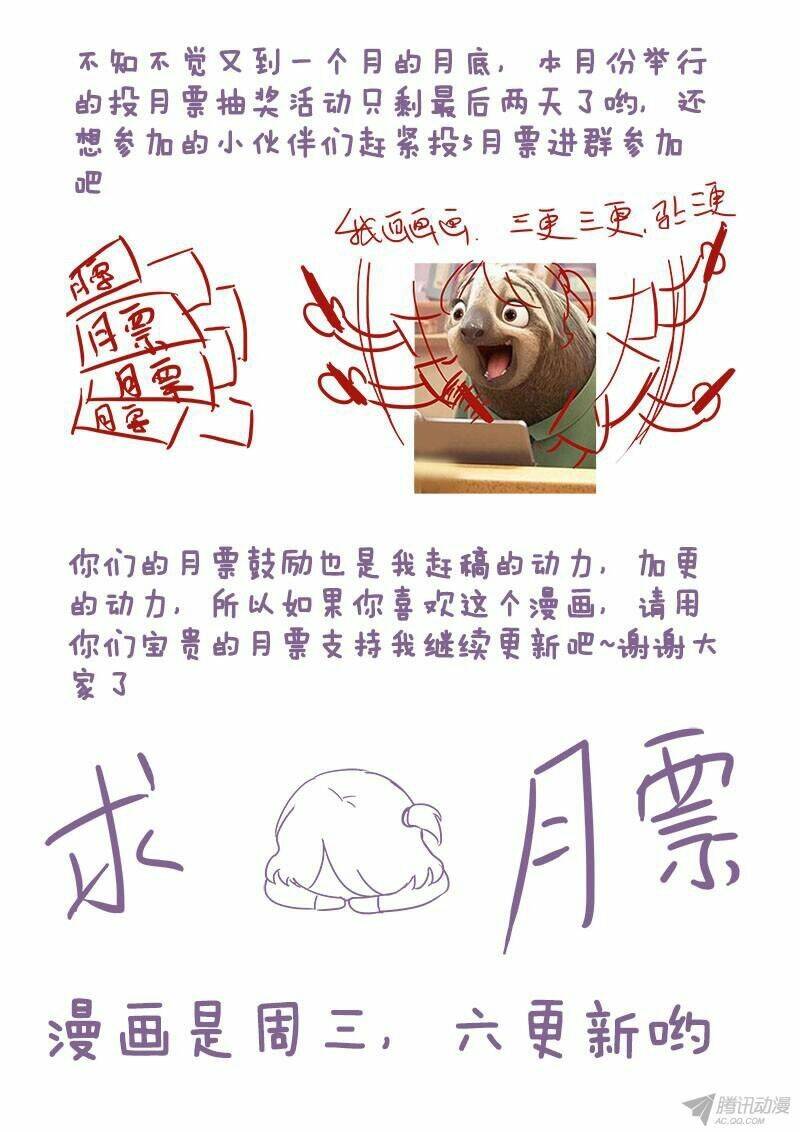 不知不觉又到一个月的月底，本月份举行
的投月票抽奖活动只剩最后两天了哟，还
想参加的小伙伴们赶紧投5月票进群参加
吧
我画画画、三更三更,
月票
月票
月票
月票
你们的月票鼓励也是我赶稿的动力，加更
的动力，所以如果你喜欢这个漫画，请用
你们宝贵的月票支持我继续更新吧~谢谢大
家了
求 月票
漫画是周三，六更新哟
腾讯动漫
AC.QQ.COM